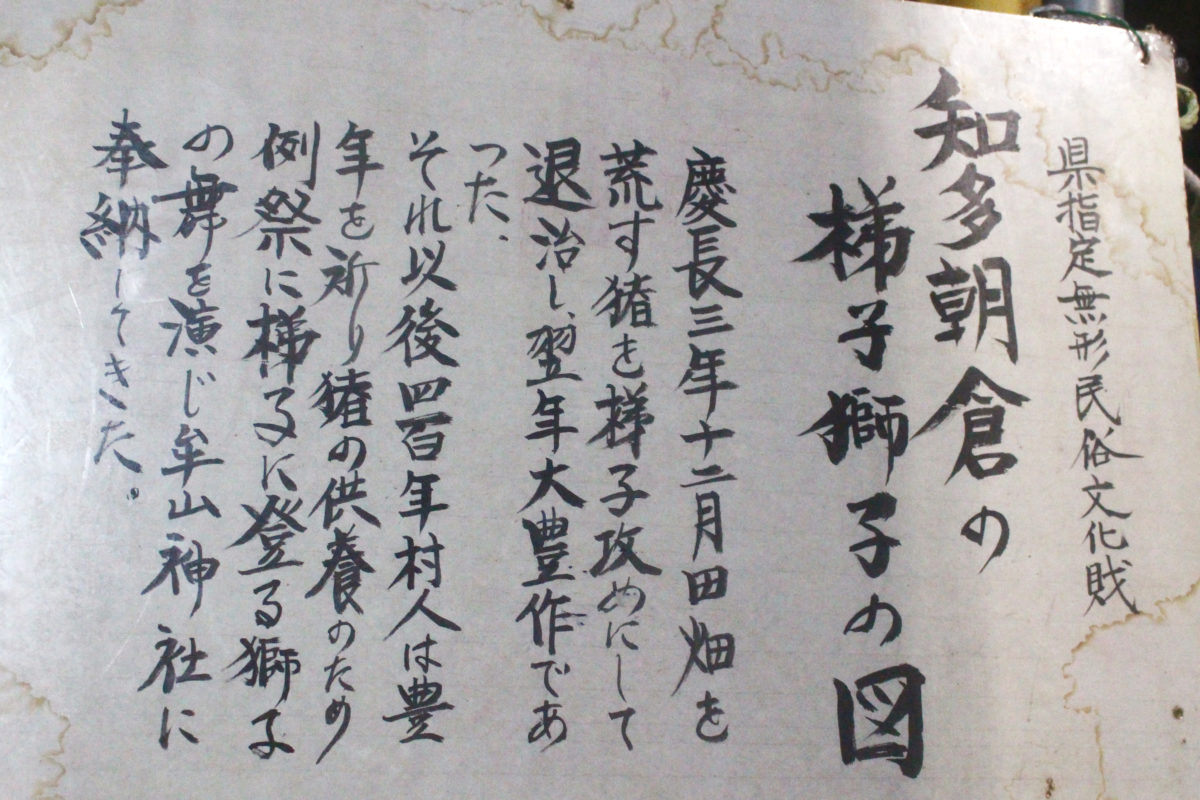 県指定無形民俗文化財
知多朝倉の
梯子獅子の図
慶長三年十二月田畑を
荒す猪を梯子攻めにして
退治し、翌年大豊作であ
った、
それ以後四百年村人は豊
年を祈り猪の供養のため
例祭に梯子に登る獅子
の舞を演じ牟山神社に
奉納してきた。